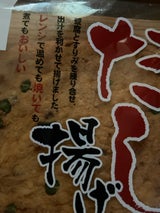 だし
揚げ
豆腐とすりみを練り合せ、
出汁を利かせて揚げました。
レンジで温めても焼いても
煮てもおいしい